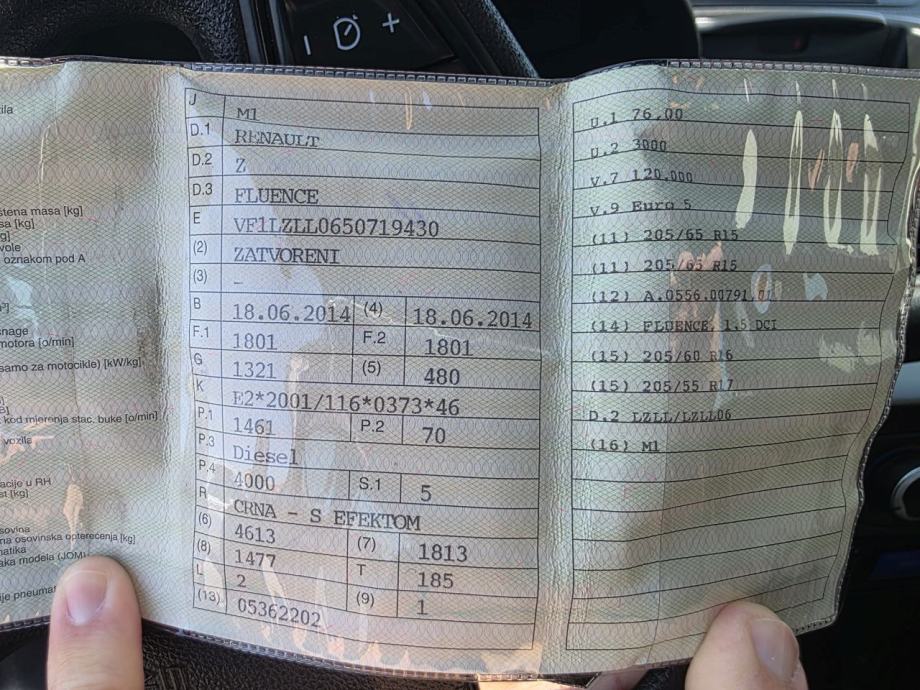 zila
štena masa [kg]
sa [kg]
g]
vole
oznakom pod A
³]
snage
motora [o/min]
samo za motocikle) [kW/kg]
kod mjerenja stac. buke [o/min]
vozila
acije u RH
st [kg]
sovina
na osovinska opterećenja [kg]
matika
aka modela (JOM)
ije pneumat
J M1
D.1 RENAULT
D.2 Z
D.3 FLUENCE
E VF1LZLL0650719430
(2) ZATVORENI
(3) –
B 18.06.2014 (4) 18.06.2014
F.1 1801 F.2 1801
G 1321 (5) 480
K E2*2001/116*0373*46
P.1 1461 P.2 70
P.3 Diesel
P.4 4000 S.1 5
R CRNA - S EFEKTOM
(6) 4613 (7) 1813
(8) 1477 T 185
L 2 (9) 1
(13) 05362202
U.1 76,00
U.2 3000
V.7 120,000
V.9 Euro 5
(11) 205/65 R15
(11) 205/65 R15
(12) A.0556.00791.01
(14) FLUENCE 1.5 DCI
(15) 205/60 R16
(15) 205/55 R17
D.2 LZLL/LZLL06
(16) M1